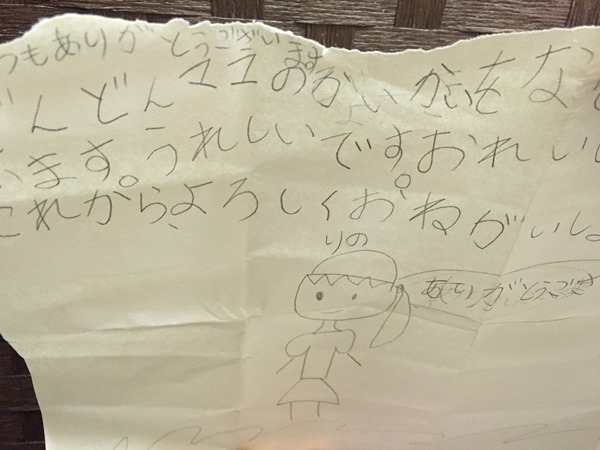 つもありがとうございます
どんどんママのがいかいをな
います。うれしいです。おれいし
これからよろしくおねがいしま
りの
ありがとうござ